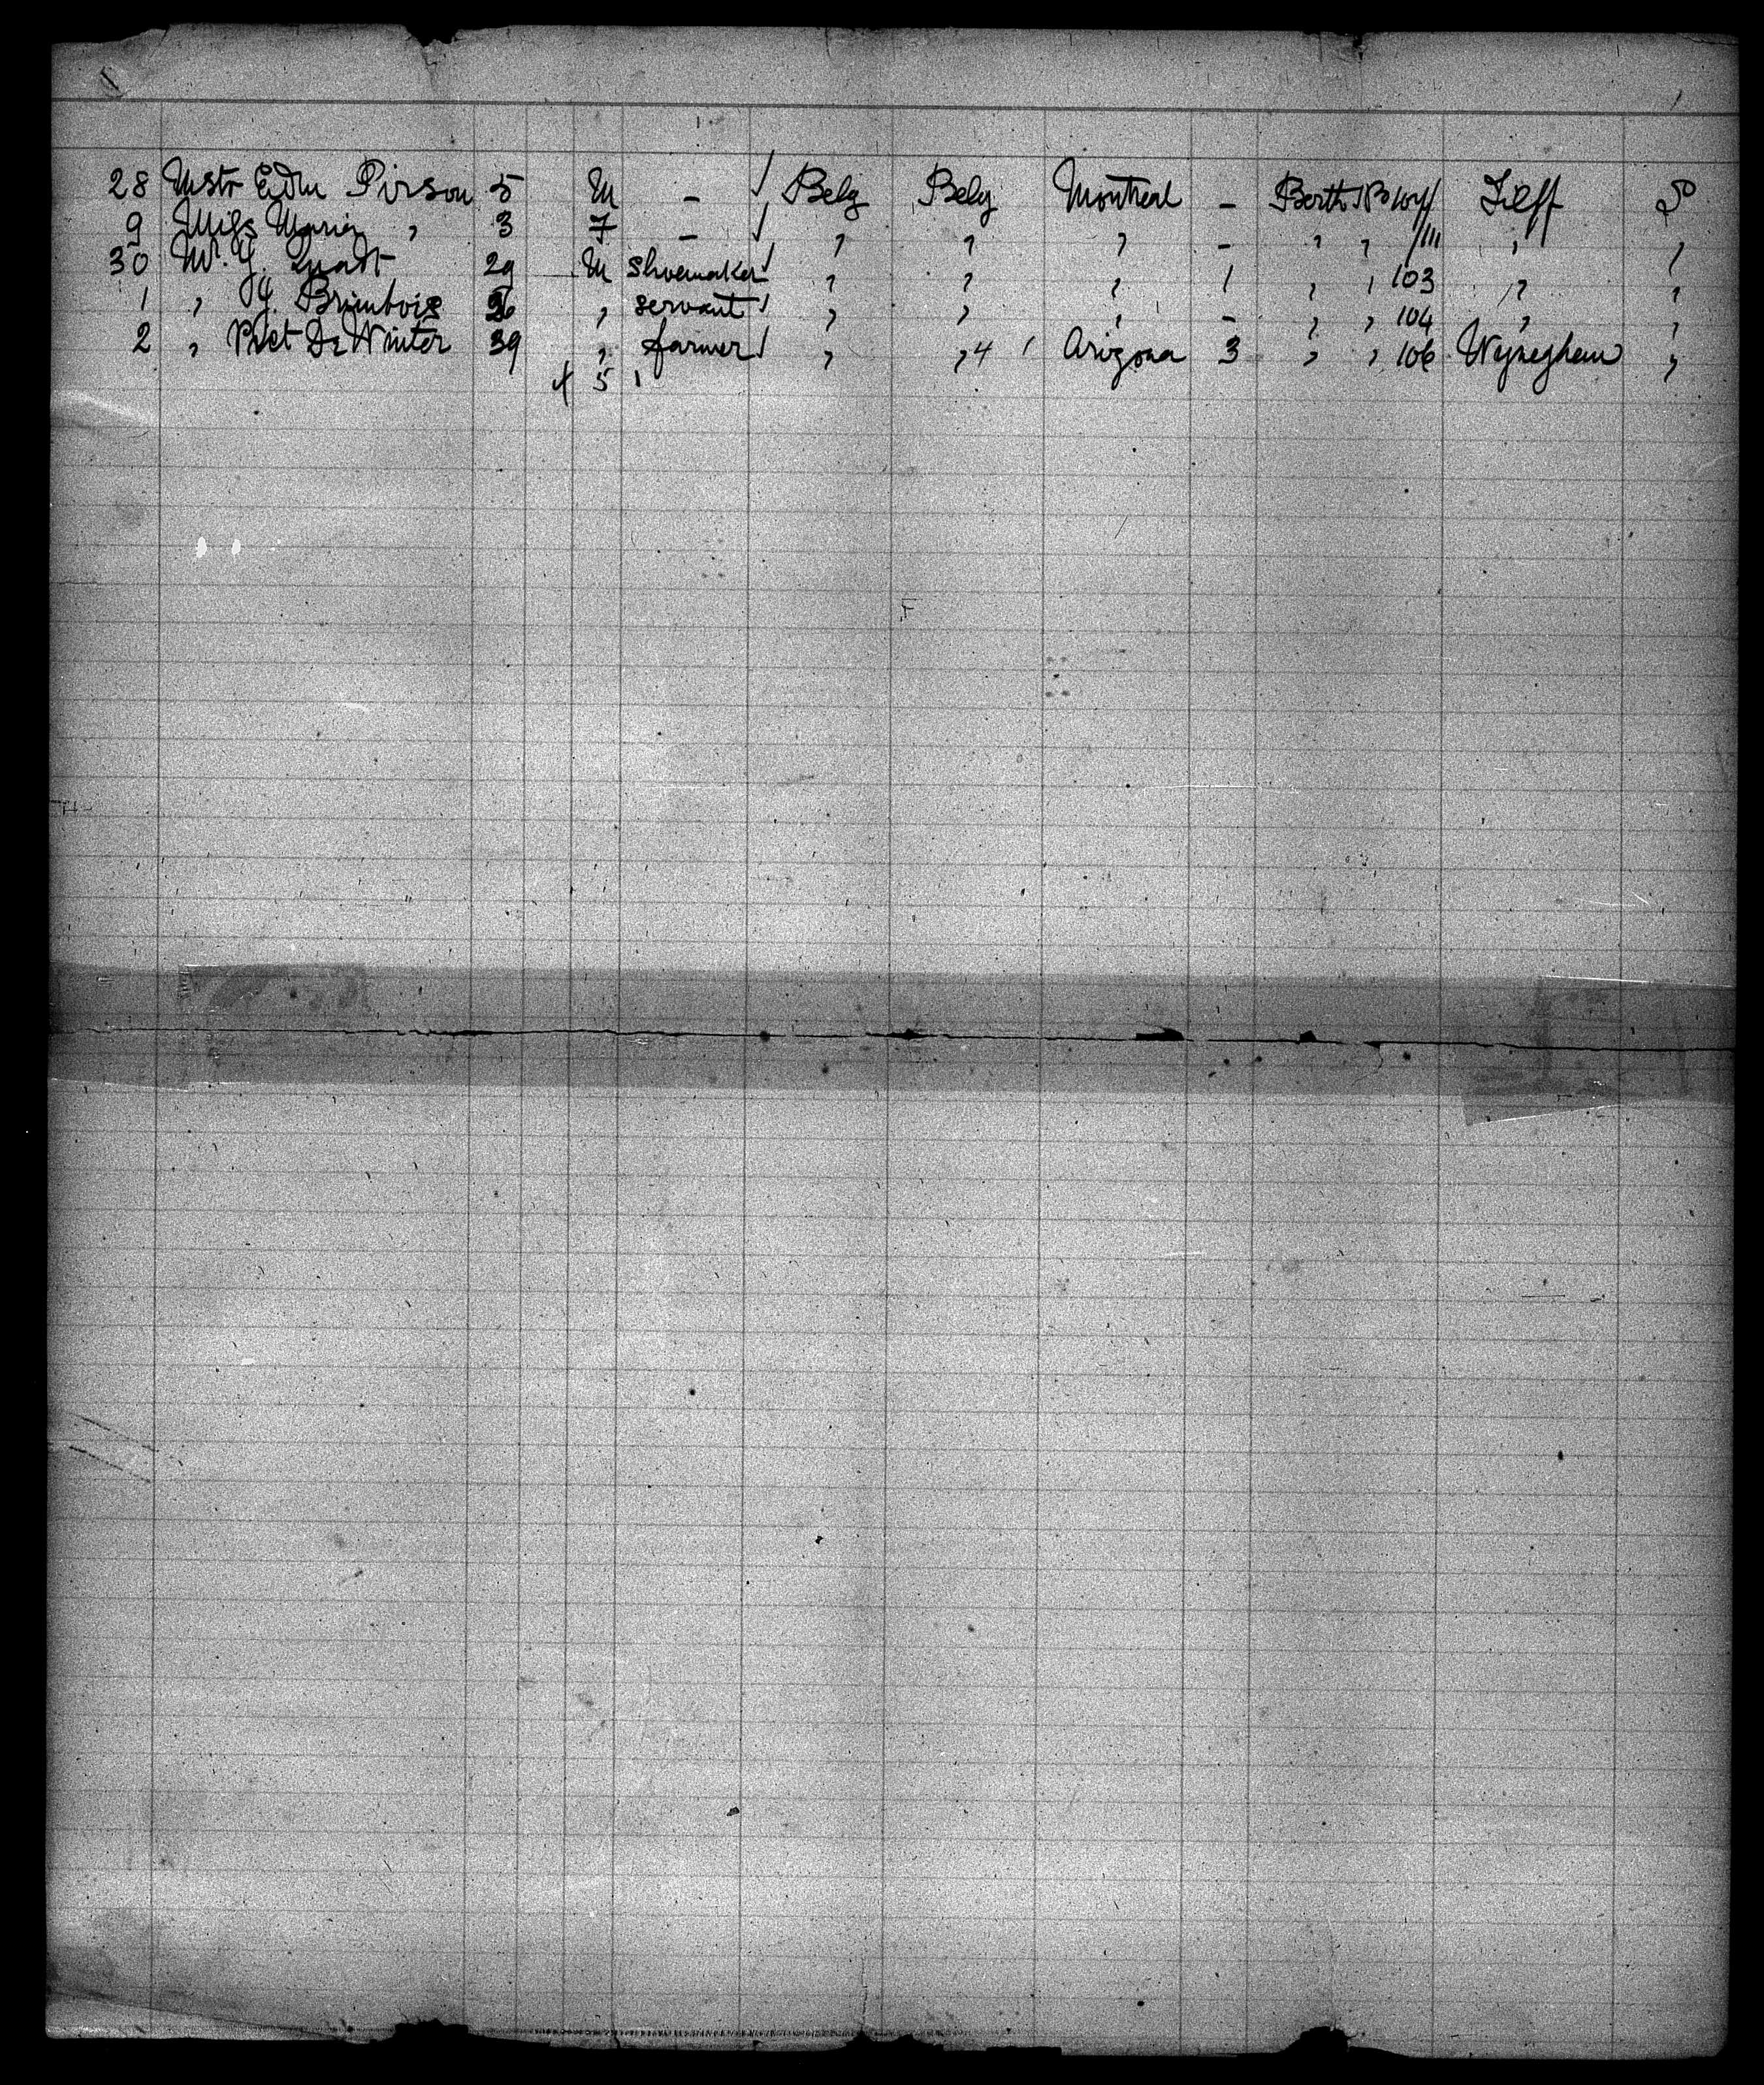 28 Mstr Edm Pirson 5 M - √ Belg Belg Montreal - Berth B Tilff S
9 Miss Maria " 3 F - √ " " " - " " 111 " "
30 Mr. 29 M shoemaker √ " " " 1 " " 103 " "
1 " Brimbois servant √ " " " - " " 104 " "
2 " De Winter 39 " farmer √ " " 4 Arizona 3 " " 106 Wyneghem "
5 1